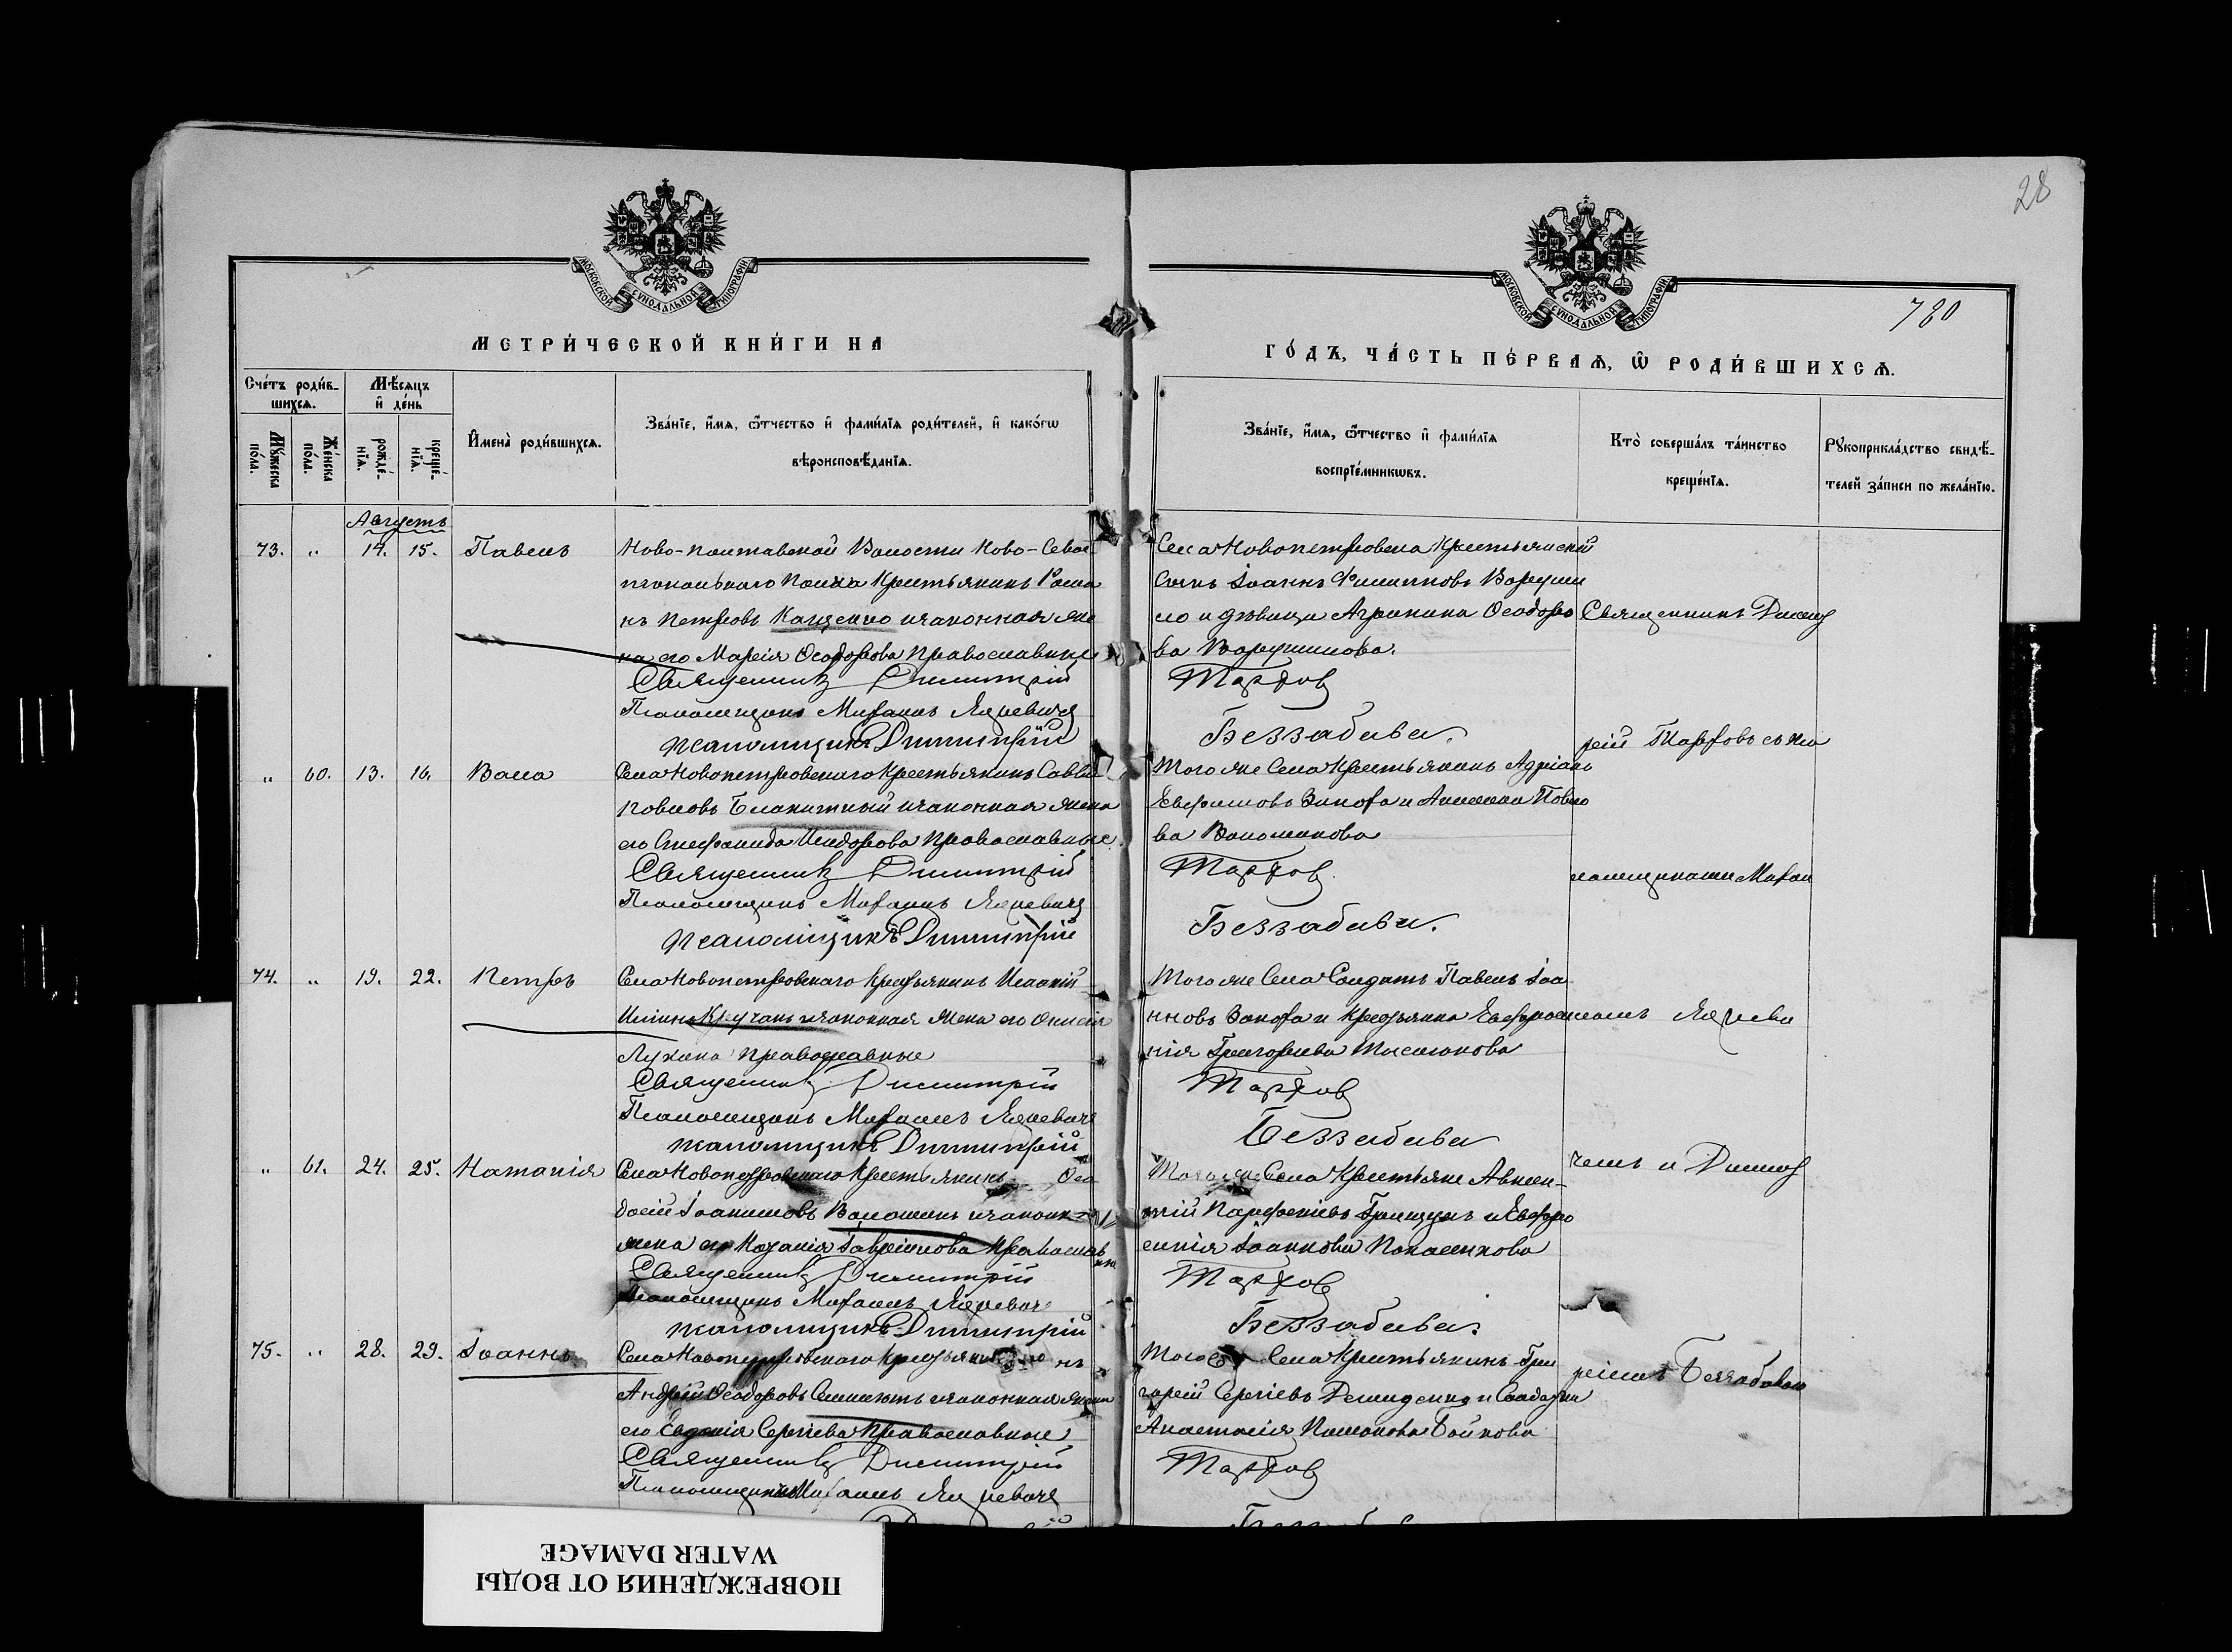 28
780
МОСКОВСКОЙ СѴНОДАЛЬНОЙ ТИПОГРАФИИ
МОСКОВСКОЙ СѴНОДАЛЬНОЙ ТИПОГРАФИИ
МЕТРИ́ЧЕСКОЙ КНИ́ГИ НА
ГО́ДЪ, ЧА́СТЬ ПЕ́РВАѦ, Ѿ РОДИ́ВШИХСѦ.
Сче́тъ роди́в-
шихсѧ.
Мѣ́сяцъ
и҆ де́нь
Му́жеска по́ла.
Же́нска по́ла.
рожде́-нїѧ.
креще́-нїѧ.
И҆мена̀ роди́вшихсѧ.
Зва́нїе, и҆́мѧ, ѿтчество и҆ фами́лїѧ роди́телей, и҆ како́гѡ
вѣроисповѣ́данїѧ.
Зва́нїе, и҆́мѧ, ѿтчество и҆ фами́лїѧ
воспрїе́мникѡвъ.
Кто̀ соверша́лъ та́инство
креще́нїѧ.
Рукоприкла́дство свидѣ́-
телей за́писи по жела́нїю.
Августъ
73. " 14. 15. Павелъ
Ново-полтавской Волости Ново-Севас
топольскаго крестьянинъ Рома
нъ Петровъ Каценко и законная же
на его Марѳія Ѳеодорова Православные
Священникъ Димитрій
Псаломщикъ Михаилъ Яцкевичъ
псаломщикъ Димитрій
Села Новопетровска крестьянскій
сынъ Іоаннъ Филипповъ
ло и дѣвица Агрипина Ѳеодоро
ва
Тарховъ
Беззабава.
Священникъ Димит
рій Тарховъ съ пса
ломщиками Михаи
ломъ Яцкеви
чемъ и Димит
ріемъ Беззабавою
" 60. 13. 16. Васса
Села Новопетровскаго крестьянинъ Савва
Павловъ Блакитный и законная жена
его Стефанида Исидорова Православные.
Священникъ Димитрій
Псаломщикъ Михаилъ Яцкевичъ
псаломщикъ Димитрій
Того же Села крестьянинъ Адріанъ
Евфимовъ и Павло
ва Волошинова
Тарховъ.
Беззабава.
74. " 19. 22. Петръ
Села Новопетровскаго крестьянинъ
Илiинъ и законная жена его
Лукина православные
Священникъ Димитрій
Псаломщикъ Михаилъ Яцкевичъ
псаломщикъ Димитрій
Того же Села Солдатъ Павелъ Іоа
нновъ и крестьянка Евфроси
нія Григорьева
Тарховъ
Беззабава
" 61. 24. 25. Наталія
Села Новопетровскаго крестьянинъ Ѳео
досій Іоанновъ Волошинъ и законная
жена его Наталія Гавріилова Православ
ные
Священникъ Димитрій
Псаломщикъ Михаилъ Яцкевичъ
псаломщикъ Димитрій
Того же Села крестьяне Авксен-
тій Парѳеніевъ Грищукъ и Евфро
синія Іоаннова
Тарховъ
Беззабава.
75. " 28. 29. Іоаннъ
Села Новопетровскаго крестьянинъ
Андрей Ѳеодоровъ и законная жена
его Евдокія Сергіева Православные
Священникъ Димитрій
Псаломщикъ Михаилъ Яцкевичъ
Того Села крестьянинъ Гри
горій Сергіевъ Демиденко и Солдатка
Анастасія Бойкова
Тарховъ
ПОВРЕЖДЕНИЯ ОТ ВОДЫ
WATER DAMAGE